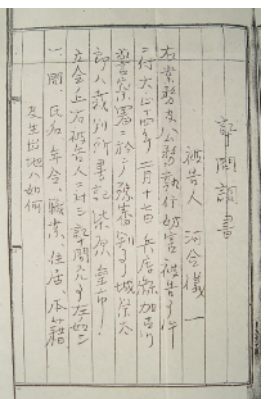 訊問調書
被告人 河合儀一
右業務及公務執行妨害被告事件
ニ付大正四年二月十七日兵庫縣加古川
警察署ニ於テ豫審判事城榮太
郎ハ裁判所書記柴原重市
立会ノ上右被告人ニ対シ訊問スル事左ノ如シ
一、問、氏名、年令、職業、住居、本籍
及生出地ハ如何